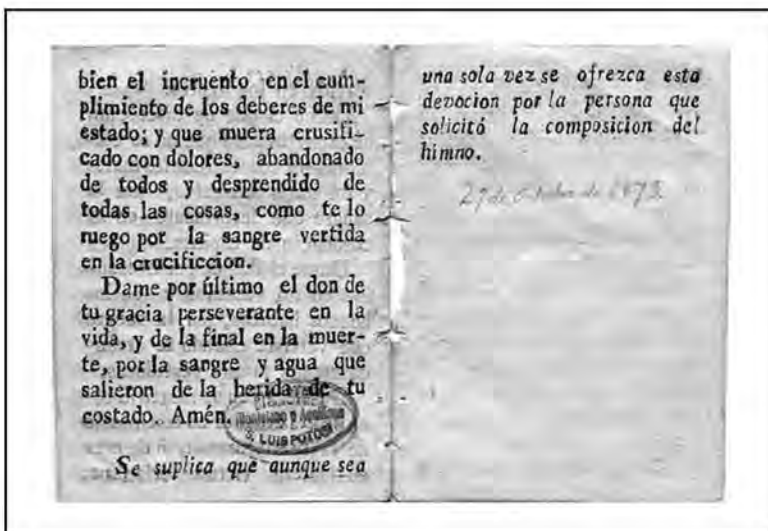 bien el incruento en el cum-
plimiento de los deberes de mi
estado; y que muera crusifi-
cado con dolores, abandonado
de todos y desprendido de
todas las cosas, como te lo
ruego por la sangre vertida
en la crucificcion.
Dame por último el don de
tu gracia perseverante en la
vida, y de la final en la muer-
te, por la sangre y agua que
salieron de la herida de tu
costado. Amén.
S. LUIS POTOSI
Se suplica que aunque sea
una sola vez se ofrezca esta
devocion por la persona que
solicitó la composicion del
himno.
de Octubre de